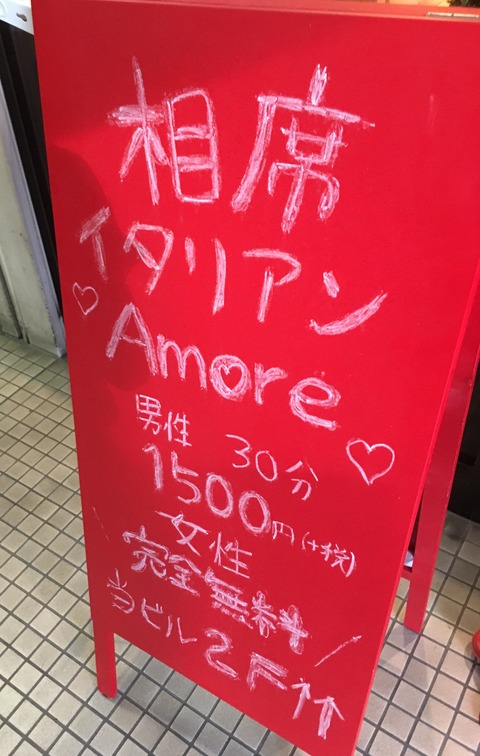 相席
イタリアン
Amore
男性 30分
1500円(+税)
女性
完全無料
当ビル2F↑↑